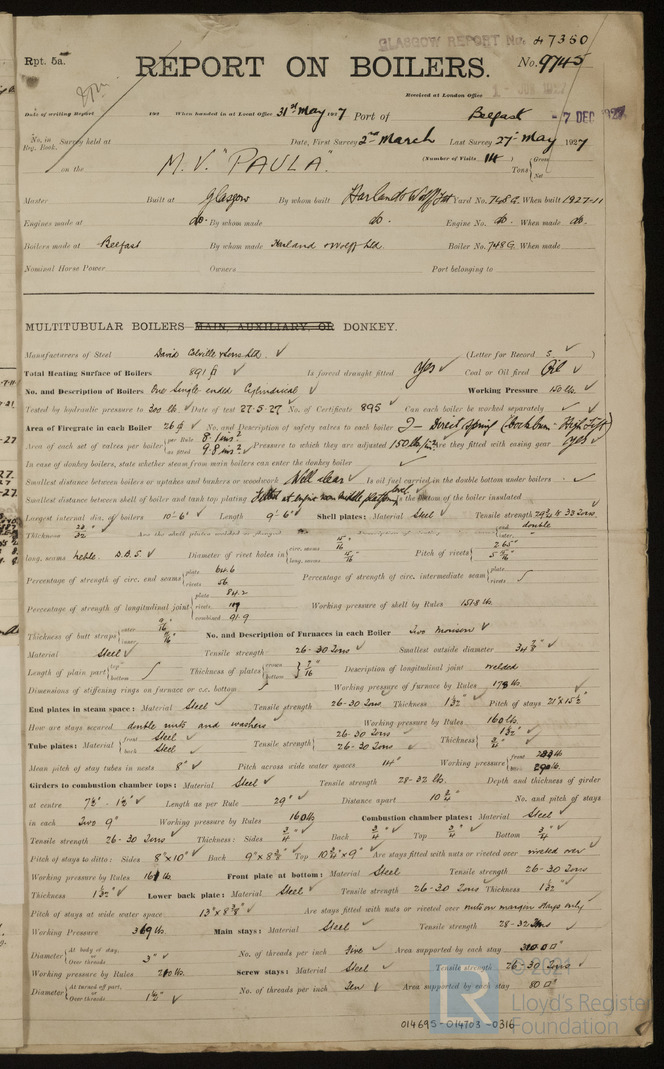 GLASGOW REPORT No. 47350
Rpt. 5a.
REPORT ON BOILERS.
No. 9745
Received at London Office
1 - JUN 1927
Date of writing Report 192 When handed in at Local Office 31st May 1927 Port of Belfast
7 DEC 1927
No. in Reg. Book. Survey held at Date, First Survey 2nd March Last Survey 27th May 1927
on the M.V. "PAULA". (Number of Visits 14) Tons Gross Net
Master Built at Glasgow By whom built Harland & Wolff Ltd Yard No. 748 G. When built 1927-11
Engines made at do. By whom made do. Engine No. do. When made do.
Boilers made at Belfast By whom made Harland & Wolff Ltd. Boiler No. 748 G. When made
Nominal Horse Power Owners Port belonging to
MULTITUBULAR BOILERS—MAIN, AUXILIARY, OR DONKEY.
Manufacturers of Steel David Colville & Sons Ltd. (Letter for Record S)
Total Heating Surface of Boilers 891 Is forced draught fitted Yes Coal or Oil fired Oil
No. and Description of Boilers One Single ended Cylindrical Working Pressure 150 lbs.
Tested by hydraulic pressure to 300 lbs. Date of test 27-5-27 No. of Certificate 895 Can each boiler be worked separately
Area of Firegrate in each Boiler 26 No. and Description of safety valves to each boiler 2 - Direct Spring (Cockburn - High Lift)
Area of each set of valves per boiler per Rule 8.1 ins² as fitted 9.8 ins² Pressure to which they are adjusted 150 lbs/ Are they fitted with easing gear Yes
In case of donkey boilers, state whether steam from main boilers can enter the donkey boiler
Smallest distance between boilers or uptakes and bunkers or woodwork Well clear Is oil fuel carried in the double bottom under boilers
Smallest distance between shell of boiler and tank top plating Is the bottom of the boiler insulated
Largest internal dia. of boilers 10'-6" Length 9'-6" Shell plates: Material Steel Tensile strength 29½ to 33 Tons.
Thickness Are the shell plates welded or flanged
long. seams treble. D.B.S. Diameter of rivet holes in circ. seams 15/16 long. seams 15/16 Pitch of rivets 2.65" 5 11/16
Percentage of strength of circ. end seams plate 64.6 rivets 56 Percentage of strength of circ. intermediate seam plate rivets
Percentage of strength of longitudinal joint plate 84.2 rivets combined 91.9 Working pressure of shell by Rules 151.8 lbs.
Thickness of butt straps outer inner No. and Description of Furnaces in each Boiler Two Morison
Material Steel Tensile strength 26-30 Tons Smallest outside diameter
Length of plain part top bottom Thickness of plates crown bottom 7/16 Description of longitudinal joint welded
Dimensions of stiffening rings on furnace or c.c. bottom Working pressure of furnace by Rules 178 lbs.
End plates in steam space: Material Steel Tensile strength 26-30 Tons Thickness 1 1/32" Pitch of stays 21" x 15½"
How are stays secured double nuts and washers Working pressure by Rules 160 lbs.
Tube plates: Material front Steel back Steel Tensile strength 26-30 Tons 26-30 Tons Thickness 1 1/32" 3/4"
Mean pitch of stay tubes in nests 8" Pitch across wide water spaces 14" Working pressure front back
Girders to combustion chamber tops: Material Steel Tensile strength 28-32 lbs. Depth and thickness of girder
at centre 7½" - 1½" Length as per Rule 29" Distance apart 10 3/4" No. and pitch of stays
in each Two 9" Working pressure by Rules 160 lbs Combustion chamber plates: Material Steel
Tensile strength 26-30 Tons Thickness: Sides 3/4 Back 3/4 Top 3/4 Bottom 3/4
Pitch of stays to ditto: Sides 8" x 10" Back 9" x 8 3/4" Top 10 3/4" x 9" Are stays fitted with nuts or riveted over riveted over
Working pressure by Rules 161 lbs Front plate at bottom: Material Steel Tensile strength 26-30 Tons
Thickness 1 1/32" Lower back plate: Material Steel Tensile strength 26-30 Tons Thickness 1 1/32
Pitch of stays at wide water space 13" x 8 3/4" Are stays fitted with nuts or riveted over nuts on margin stays only
Working Pressure Main stays: Material Steel Tensile strength 28-32 Tons
Diameter At body of stay, or Over threads 3" No. of threads per inch Five Area supported by each stay
Working pressure by Rules 210 lbs. Screw stays: Material Steel Tensile strength 26-30 Tons
Diameter At turned off part, or Over threads 1½" No. of threads per inch Ten Area supported by each stay 80
© 2021
LR
Lloyd's Register
Foundation
014695-014703-0316